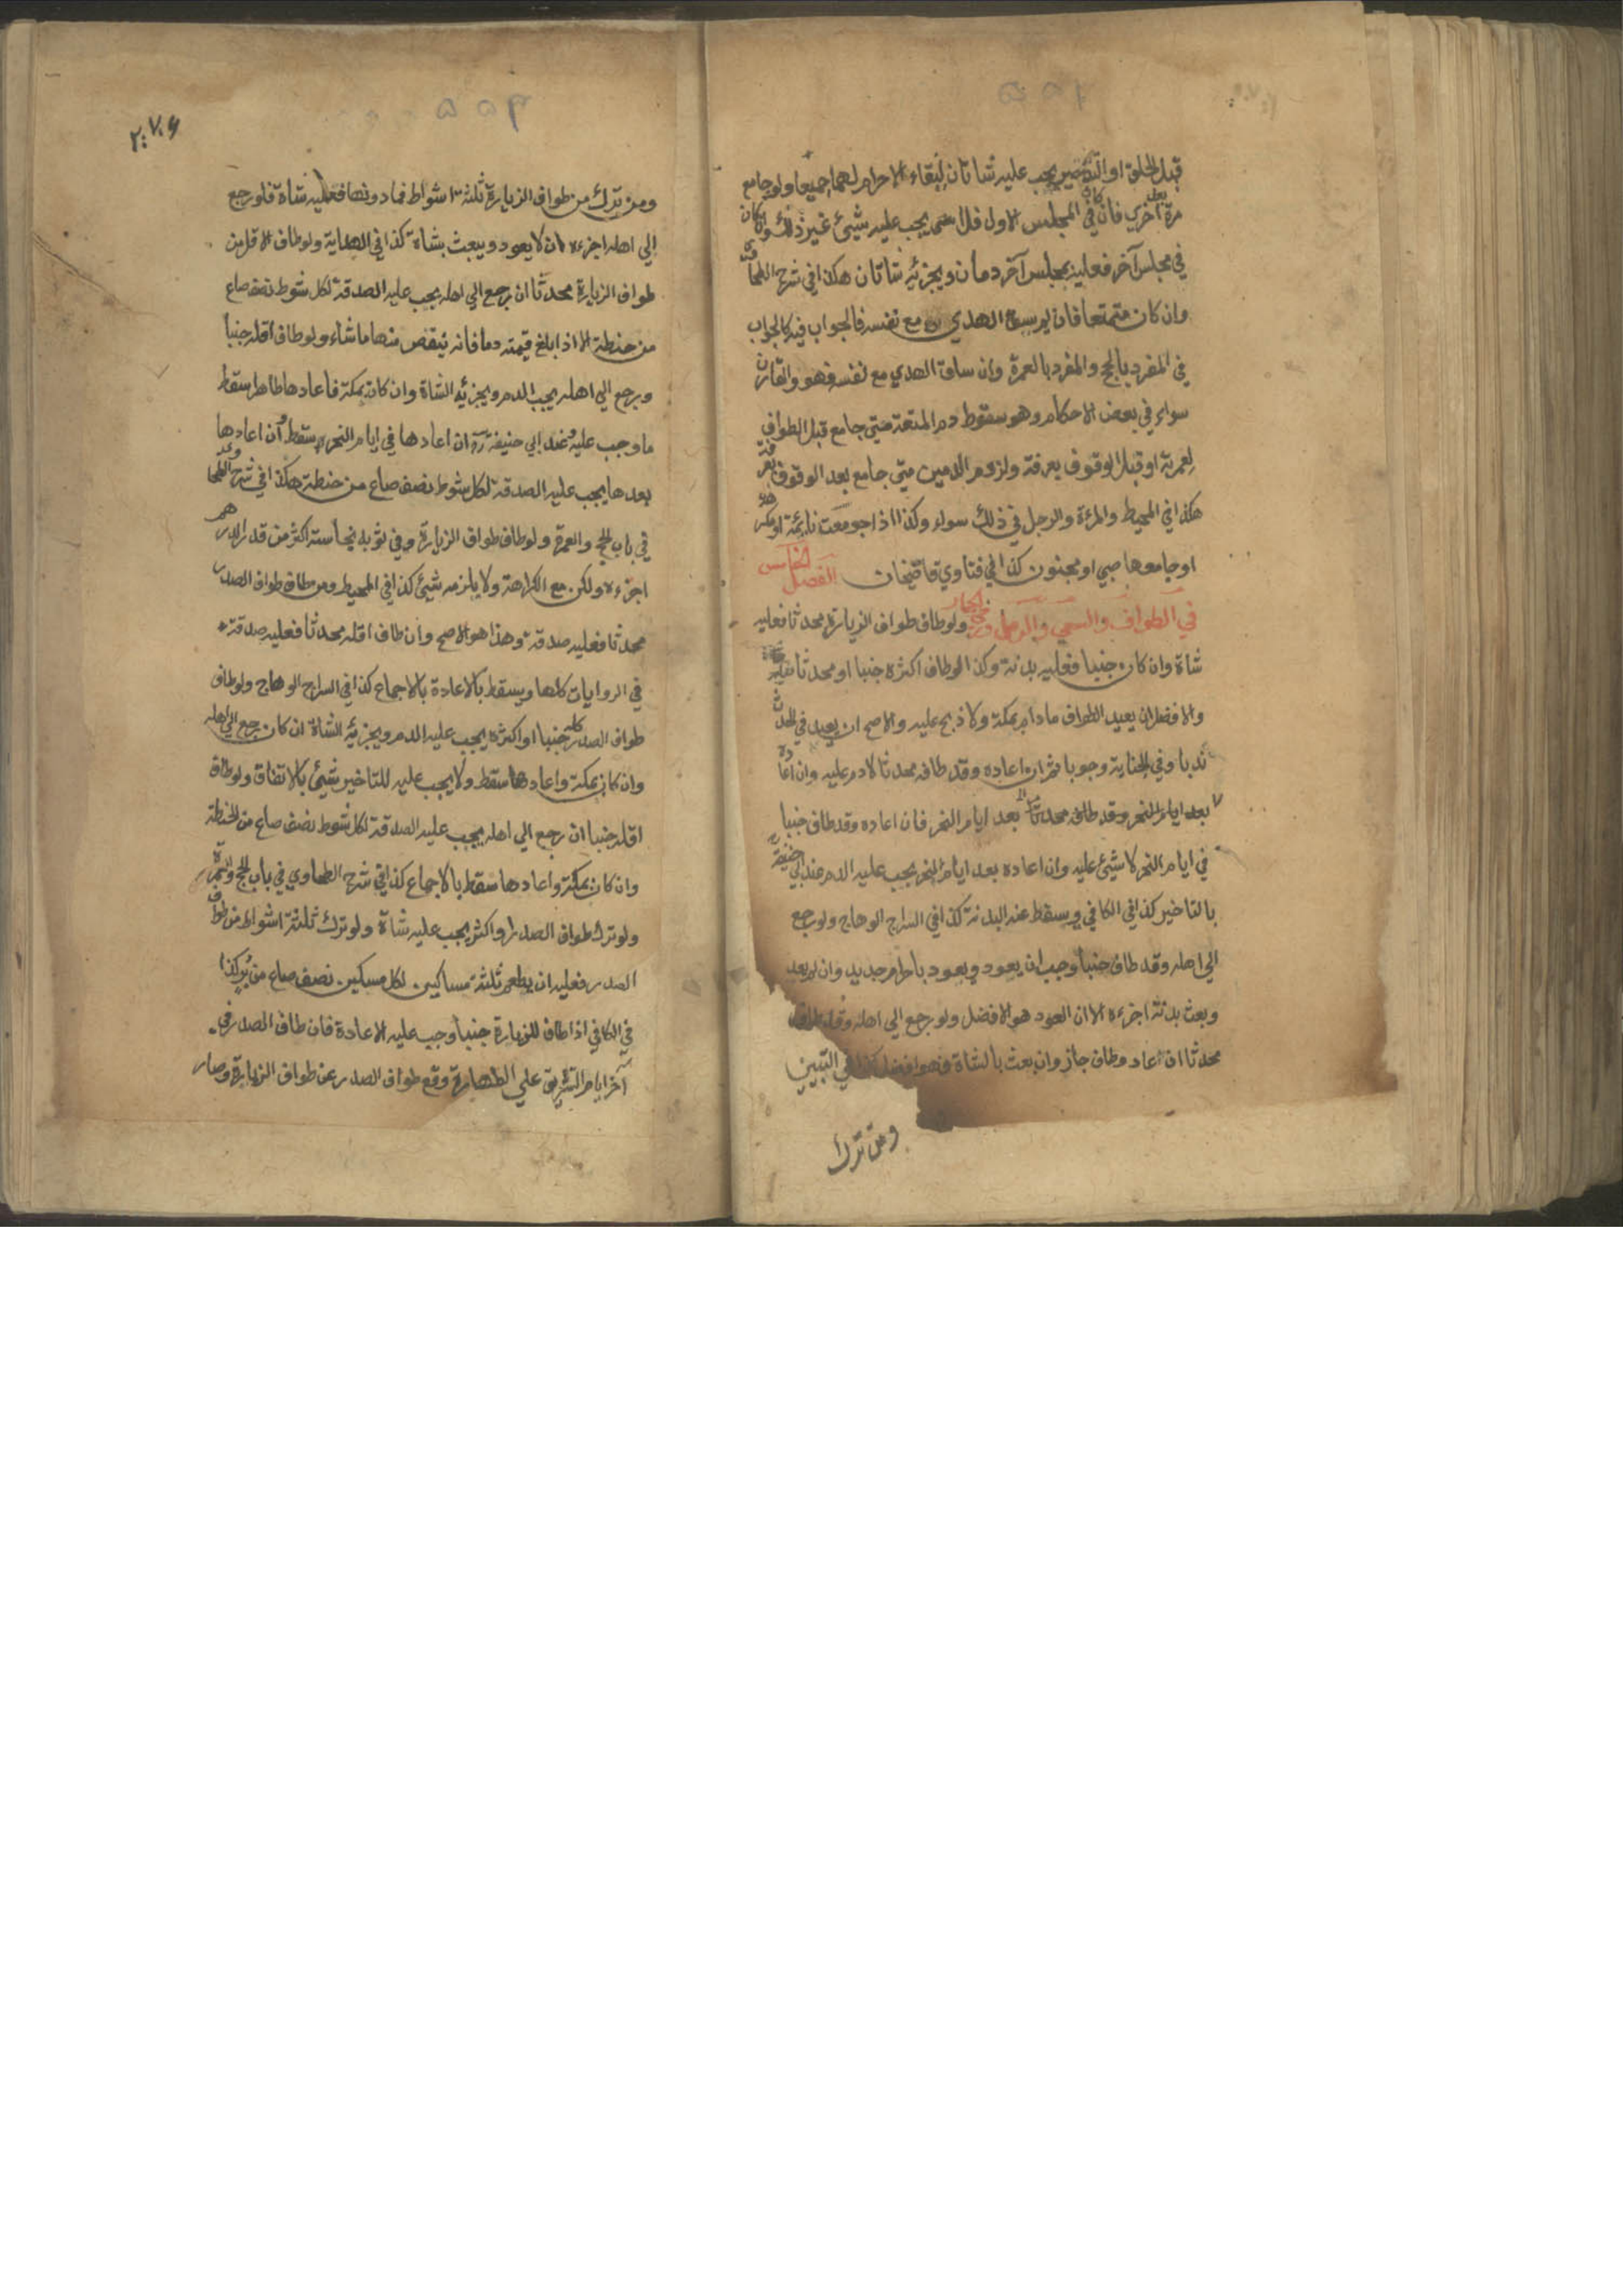 قبل الحلق او التقصير يجب عليه شاتان لبقاء الاحرام لهما جميعا ولو جامع
مرة اخري فان كان في المجلس الاول فلا يجب عليه شيئ غير ذلك وان كان
في مجلس آخر فعليه بمجلس آخر دمان ويجزئه شاتان هكذا في شرح الطحاوي
وان كان متمتعا فان لم يسق الهدي مع نفسه فالجواب فيه كالجواب
في المفرد بالحج والمفرد بالعمرة وان ساق الهدي مع نفسه فهو والقارن
سواء في بعض الاحكام وهو سقوط دم المتعة متي جامع قبل الطواف
لعمرته او قبل الوقوف بعرفة ولزوم الدمين متي جامع بعد الوقوف بعرفة
هكذا في المحيط والمرءة والرجل في ذلك سواء وكذا اذا جومعت نائمة او مكرهة
او جامعها صبي او مجنون كذا في فتاوي قاضيخان الفصل الخامس
في الطواف والسعي والرمل ورمي الجمار ولو طاف طواف الزيارة محدثا فعليه
شاة وان كان جنبا فعليه بدنة وكذا لو طاف اكثره جنبا او محدثا
والافضل ان يعيد الطواف مادام بمكة ولا ذبح عليه والاصح ان يعيد في الحدث
ندبا وفي الجنابة وجوبا ثم ان اعاده وقد طافه محدثا لا دم عليه وان اعاده
بعد ايام النحر وقد طافه محدثا بعد ايام النحر فان اعاده وقد طاف جنبا
في ايام النحر لا شيئ عليه وان اعاده بعد ايام النحر يجب عليه الدم عند ابي حنيفة
بالتاخير كذا في الكافي ويسقط عنه البدنة كذا في السراج الوهاج ولو رجع
الي اهله وقد طاف جنبا وجب ان يعود ويعود باحرام جديد وان لم يعد
وبعث بدنة اجزءه الا ان العود هو الافضل ولو رجع الي اهله وقد طاف
محدثا ان عاد وطاف جاز وان بعث بالشاة فهو افضل كذا في التبيين
ومن ترك
۲۰۷۶
ومن ترك من طواف الزيارة ثلثة اشواط فما دونها فعليه شاة فلو رجع
الي اهله اجزءه ان لا يعود ويبعث بشاة كذا في الهداية ولو طاف الاقل من
طواف الزيارة محدثا ان رجع الي اهله يجب عليه الصدقة لكل شوط نصف صاع
من حنطة الا اذا بلغ قيمته دما فانه ينقص منها ما شاء ولو طاف اقله جنبا
ورجع الي اهله يجب الدم ويجزئه الشاة وان كان بمكة فاعادها طاهرا سقط
ما وجب عليه وعند ابي حنيفة ان اعادها في ايام النحر سقط وان اعادها
بعدها يجب عليه الصدقة لكل شوط نصف صاع من حنطة هكذا في شرح الطحاوي
في باب الحج والعمرة ولو طاف طواف الزيارة وفي ثوبه نجاسة اكثر من قدر الدرهم
اجزءه ولكن مع الكراهة ولا يلزمه شيئ كذا في المحيط ومن طاف طواف الصدر
محدثا فعليه صدقة وهذا هو الاصح وان طاف اقله محدثا فعليه صدقة
في الروايات كلها ويسقط بالاعادة بالاجماع كذا في السراج الوهاج ولو طاف
طواف الصدر كله جنبا او اكثره يجب عليه الدم ويجزئه الشاة ان كان رجع الي اهله
وان كان بمكة واعادها سقط ولا يجب عليه للتاخير شيئ بالاتفاق ولو طاف
اقله جنبا ان رجع الي اهله يجب عليه الصدقة لكل شوط نصف صاع من الحنطة
وان كان بمكة واعادها سقط بالاجماع كذا في شرح الطحاوي في باب الحج والعمرة
ولو ترك طواف الصدر او اكثره يجب عليه شاة ولو ترك ثلثة اشواط من طواف
الصدر فعليه ان يطعم ثلثة مساكين لكل مسكين نصف صاع من بر كذا
في الكافي اذا طاف للزيارة جنبا وجب عليه الاعادة فان طاف الصدر في
آخر ايام التشريق علي الطهارة وقع طواف الصدر عن طواف الزيارة وصار